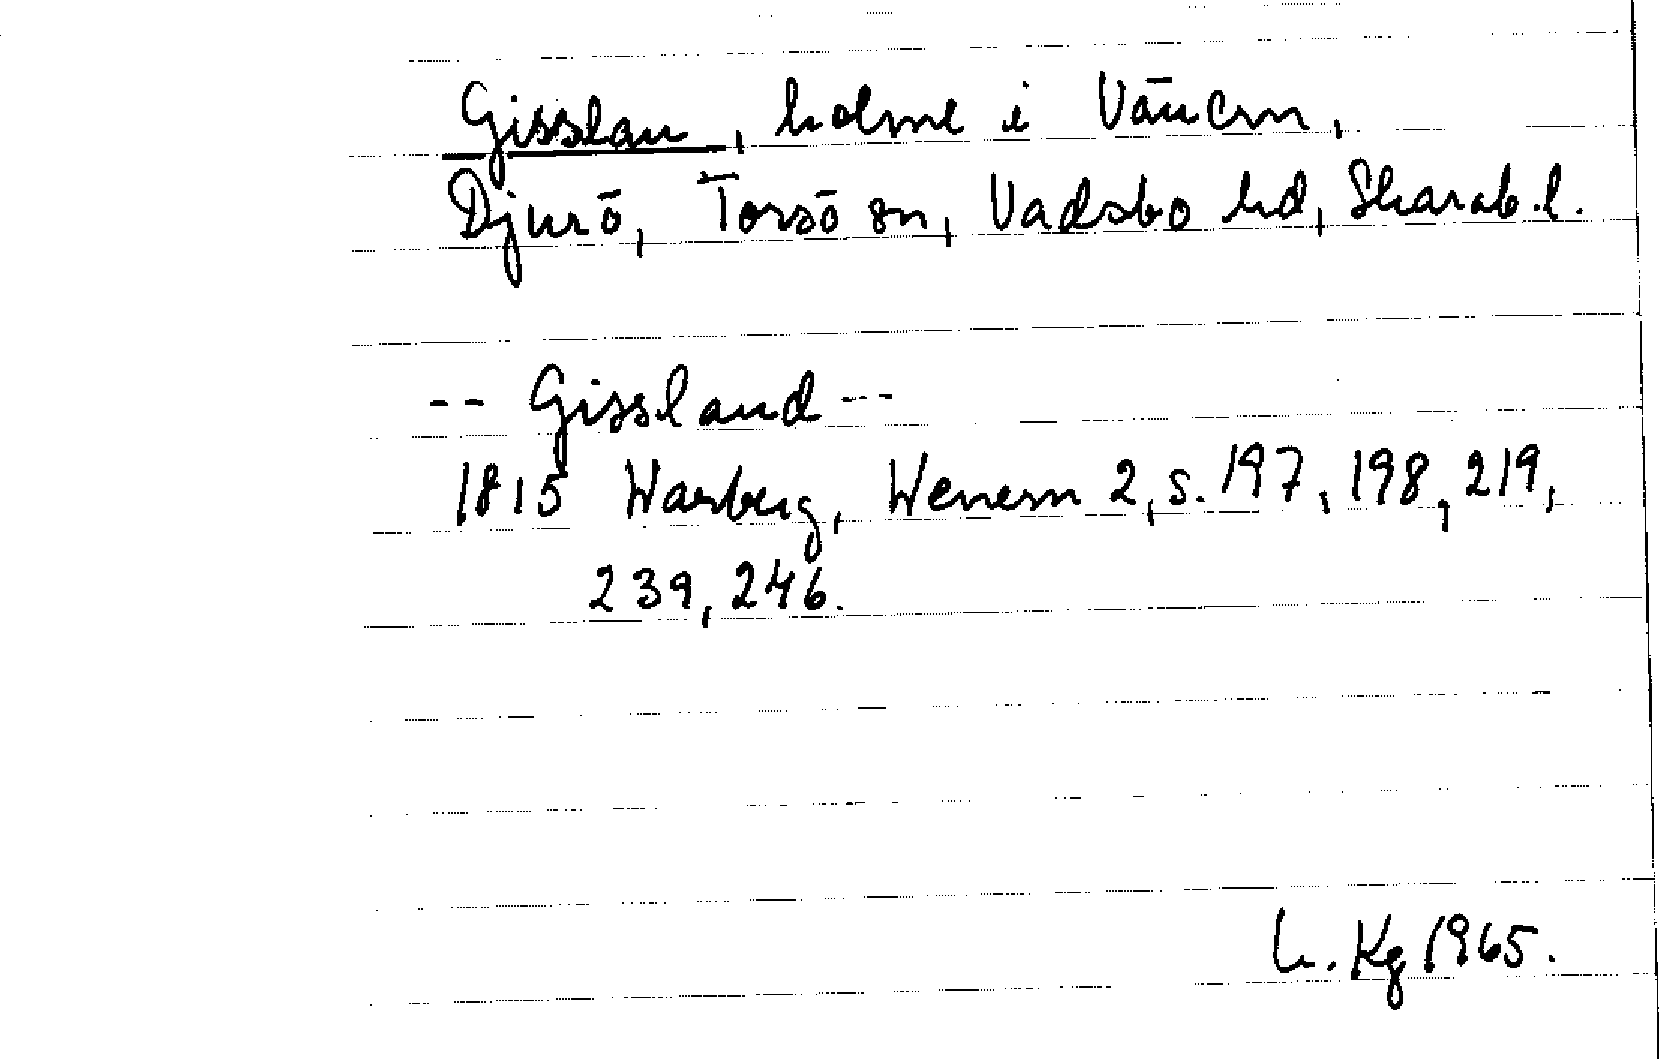 Gisslan, holme i Vänern,
Djurö, Torsö sn, Vadsbo hd, Skarab. l.
-- Gissland --
1815 Warberg, Wenern 2, s. 197, 198, 219,
239, 246.
Kg 1965.